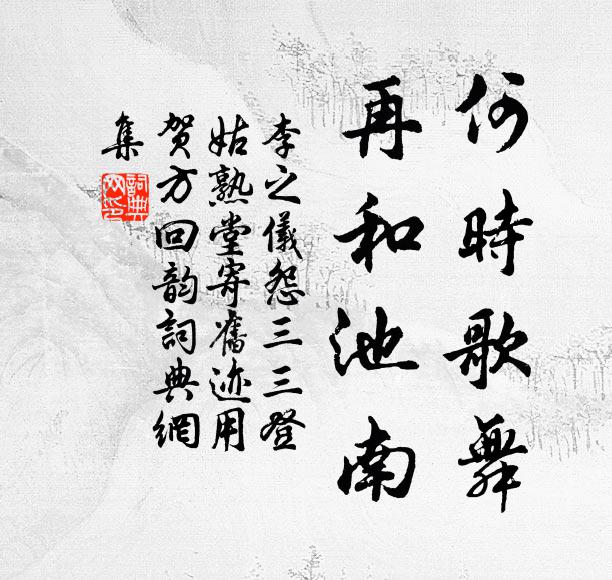 何時歌舞
再和池南
李之儀怨三三登
姑熟堂寄舊迹用
賀方回韵詞典網
集
詞典
网印